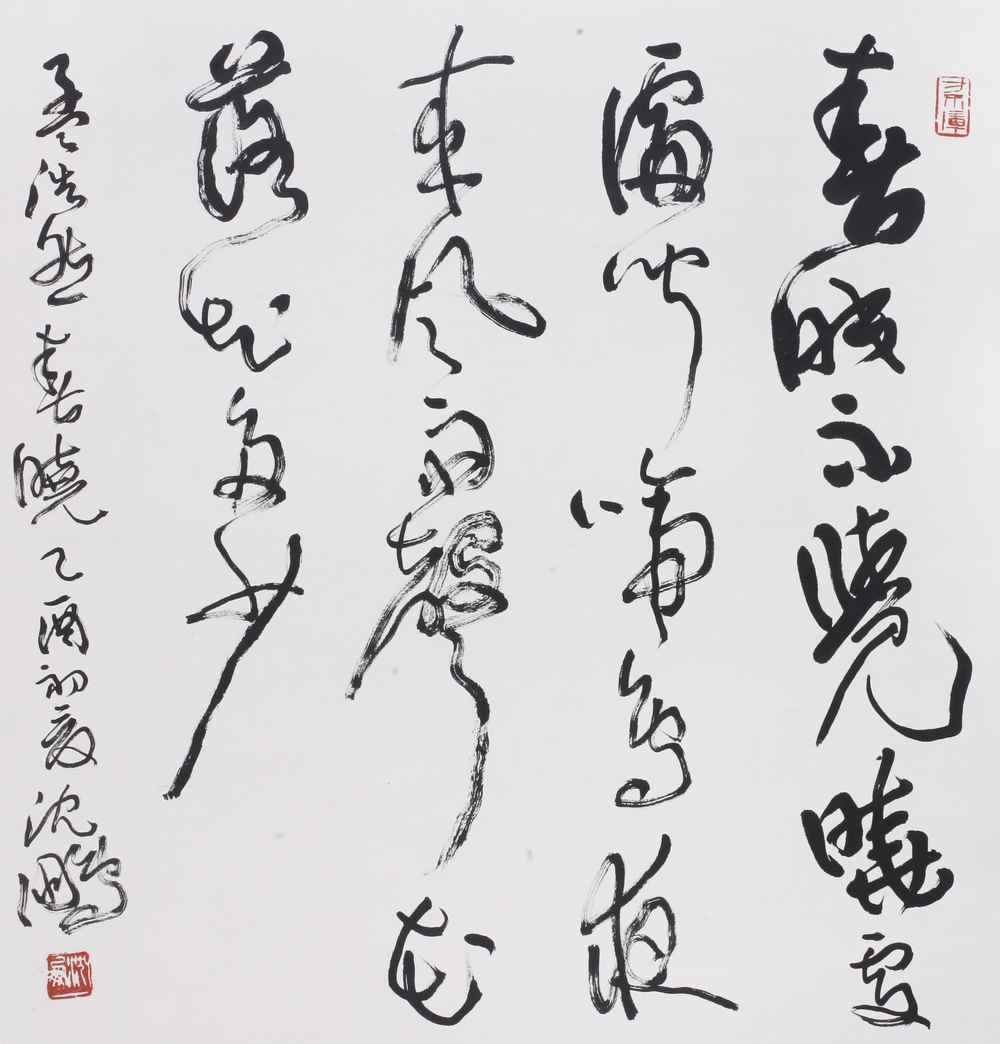 春眠不覺曉處
處聞啼鳥夜
來風雨聲花
落知多少
孟浩然春曉乙酉初夏沈鵬
沈鵬